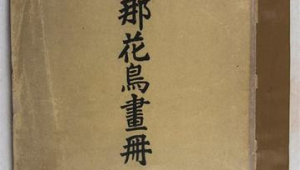 那花鳥畫冊